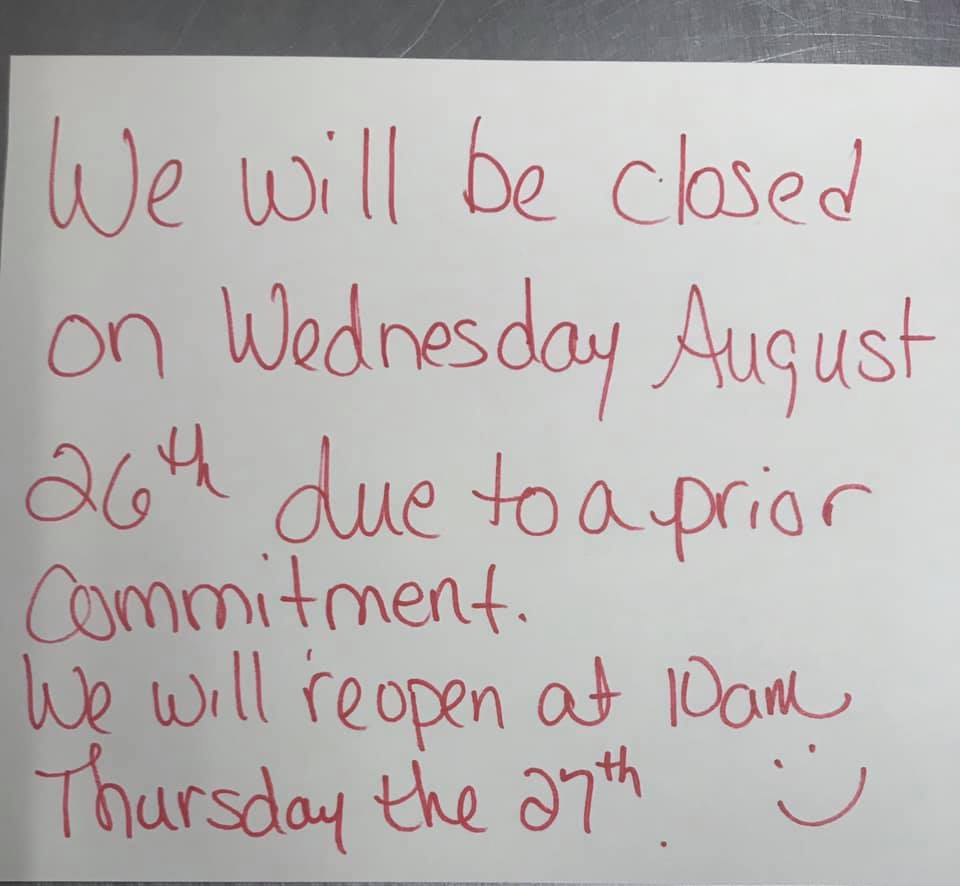 We will be closed
on Wednesday August
26th due to a prior
Commitment.
We will reopen at 10am
Thursday the 27th.